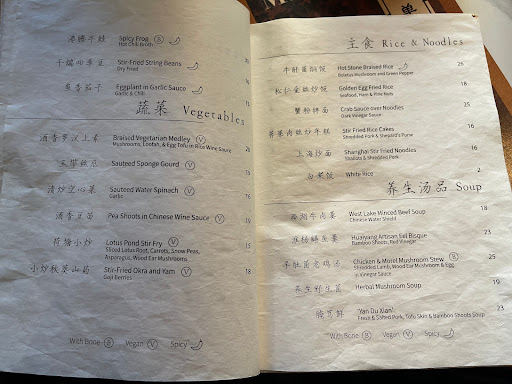 沸腾牛蛙 Spicy Frog Ⓑ
Hot Chili Broth
干煸四季豆 Stir-Fried String Beans
Dry Fried
鱼香茄子 Eggplant in Garlic Sauce
Garlic & Chili
蔬菜 Vegetables
酒香罗汉上素 Braised Vegetarian Medley Ⓥ
Mushrooms, Loofah, & Egg Tofu in Rice Wine Sauce
Sauteed Sponge Gourd Ⓥ
清炒空心菜 Sauteed Water Spinach
Garlic
酒香豆苗 Pea Shoots in Chinese Wine Sauce Ⓥ
荷塘小炒 Lotus Pond Stir Fry Ⓥ
Sliced Lotus Root, Carrots, Snow Peas,
Asparagus, Wood Ear Mushrooms
小炒秋葵山药 Stir-Fried Okra and Yam Ⓥ 18
Goji Berries
With Bone Ⓑ Vegan Ⓥ Spicy
主食 Rice & Noodles
牛肝菌焖饭 Hot Stone Braised Rice 26
Boletus Mushroom and Green Pepper
松仁金丝炒饭 Golden Egg Fried Rice
Seafood, Ham & Pine Nuts
蟹粉拌面 Crab Sauce over Noodles
Dark Vinegar Sauce
荠菜肉丝炒年糕 Stir Fried Rice Cakes 16
Shredded Pork & Shepard's Purse
上海炒面 Shanghai Stir Fried Noodles 16
Shallots & Shredded Pork
白米饭 White Rice 2
养生汤品 Soup
西湖牛肉羹 West Lake Minced Beef Soup 18
Chinese Water Shield
淮扬鳝鱼羹 Huaiyang Artisan Eel Bisque
Bamboo Shoots, Red Vinegar
羊肚菌老鸡汤 Chicken & Morel Mushroom Stew Ⓑ
Shredded Lamb, Wood Ear Mushroom & Egg
in Vinegar Sauce
养生野生菌 Herbal Mushroom Soup 19
腌笃鲜 'Yan Du Xian' 23
Fresh & Salted Pork, Tofu Skin & Bamboo Shoots Soup
With Bone Ⓑ Vegan Ⓥ Spicy